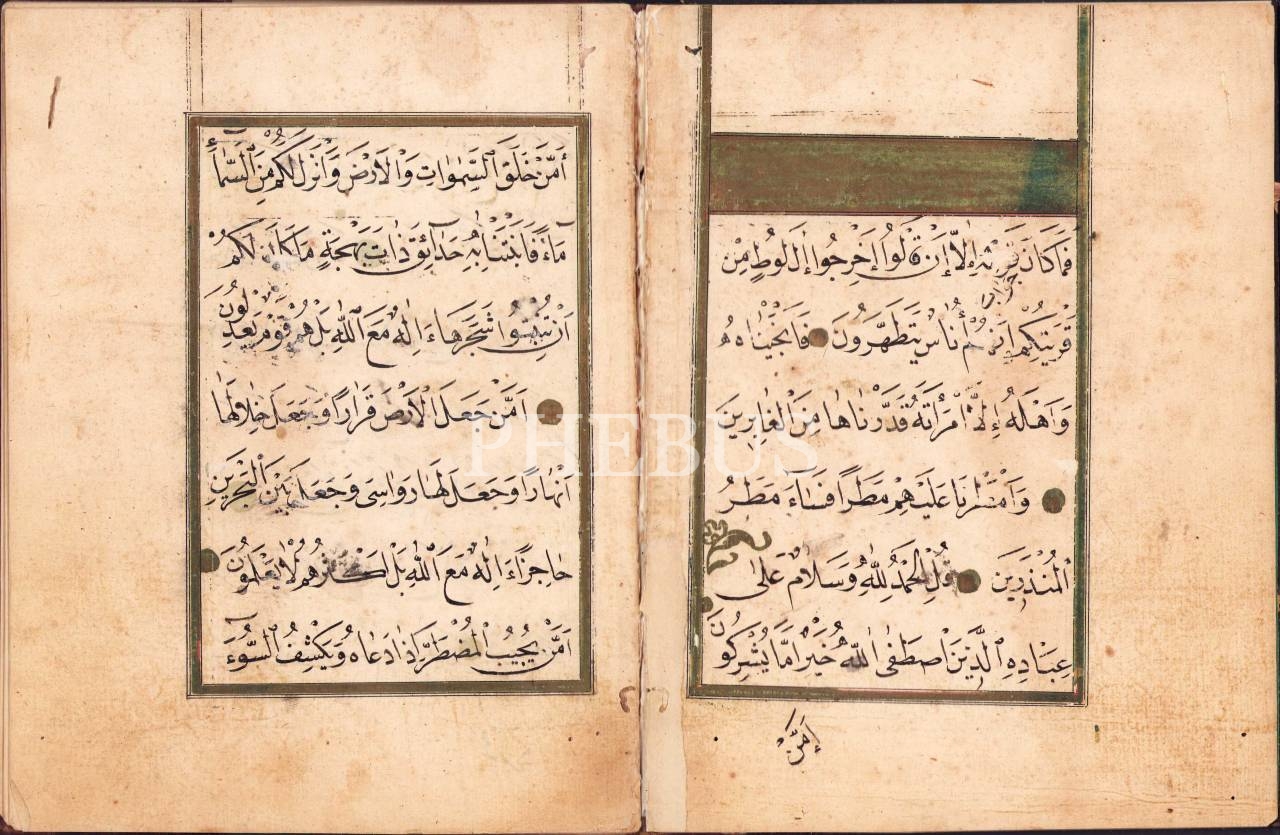 فَمَا كَانَ قَوْمِهِ إِلَّا أَنْ قَالُوا أَخْرِجُوا اٰلَ لُوطٍ مِنْ
جَوَابَ
قَرْيَتِكُمْ اِنَّهُمْ أُنَاسٌ يَتَطَهَّرُونَ فَاَنْجَيْنَاهُ
وَاَهْلَهُ إِلَّا امْرَأَتَهُ قَدَّرْنَاهَا مِنَ الْغَابِرِينَ
وَاَمْطَرْنَا عَلَيْهِمْ مَطَرًا فَسَاءَ مَطَرُ
الْمُنْذَرِينَ قُلِ الْحَمْدُ لِلّٰهِ وَسَلَامٌ عَلٰى
عِبَادِهِ الَّذِينَ اصْطَفٰى اللّٰهُ خَيْرٌ اَمَّا يُشْرِكُونَ
اَمَّنْ
أَمَّنْ خَلَقَ السَّمٰوَاتِ وَالْاَرْضَ وَاَنْزَلَ لَكُمْ مِنَ السَّمَاءِ
مَاءً فَاَنْبَتْنَا بِهِ حَدَائِقَ ذَاتَ بَهْجَةٍ مَا كَانَ لَكُمْ
اَنْ تُنْبِتُوا شَجَرَهَا ءَاِلٰهٌ مَعَ اللّٰهِ بَلْ هُمْ قَوْمٌ يَعْدِلُونَ
اَمَّنْ جَعَلَ الْاَرْضَ قَرَارًا وَجَعَلَ خِلَالَهَا
اَنْهَارًا وَجَعَلَ لَهَا رَوَاسِىَ وَجَعَلَ بَيْنَ الْبَحْرَيْنِ
حَاجِزًا ءَاِلٰهٌ مَعَ اللّٰهِ بَلْ اَكْثَرُهُمْ لَا يَعْلَمُونَ
اَمَّنْ يُجِيبُ الْمُضْطَرَّ اِذَا دَعَاهُ وَيَكْشِفُ السُّوٓءَ
PHEBUS